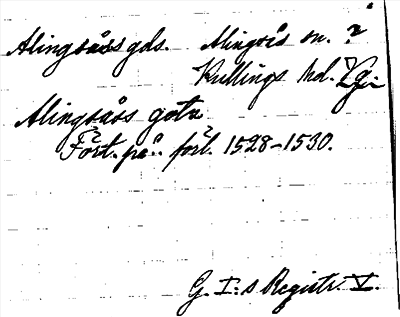 Alingsåss gds. Alingsås sn. ?
Kullings hd. Vg.
Alingsåss gotz
Fört. på förl. 1528-1530.
G. I:s Registr. V.